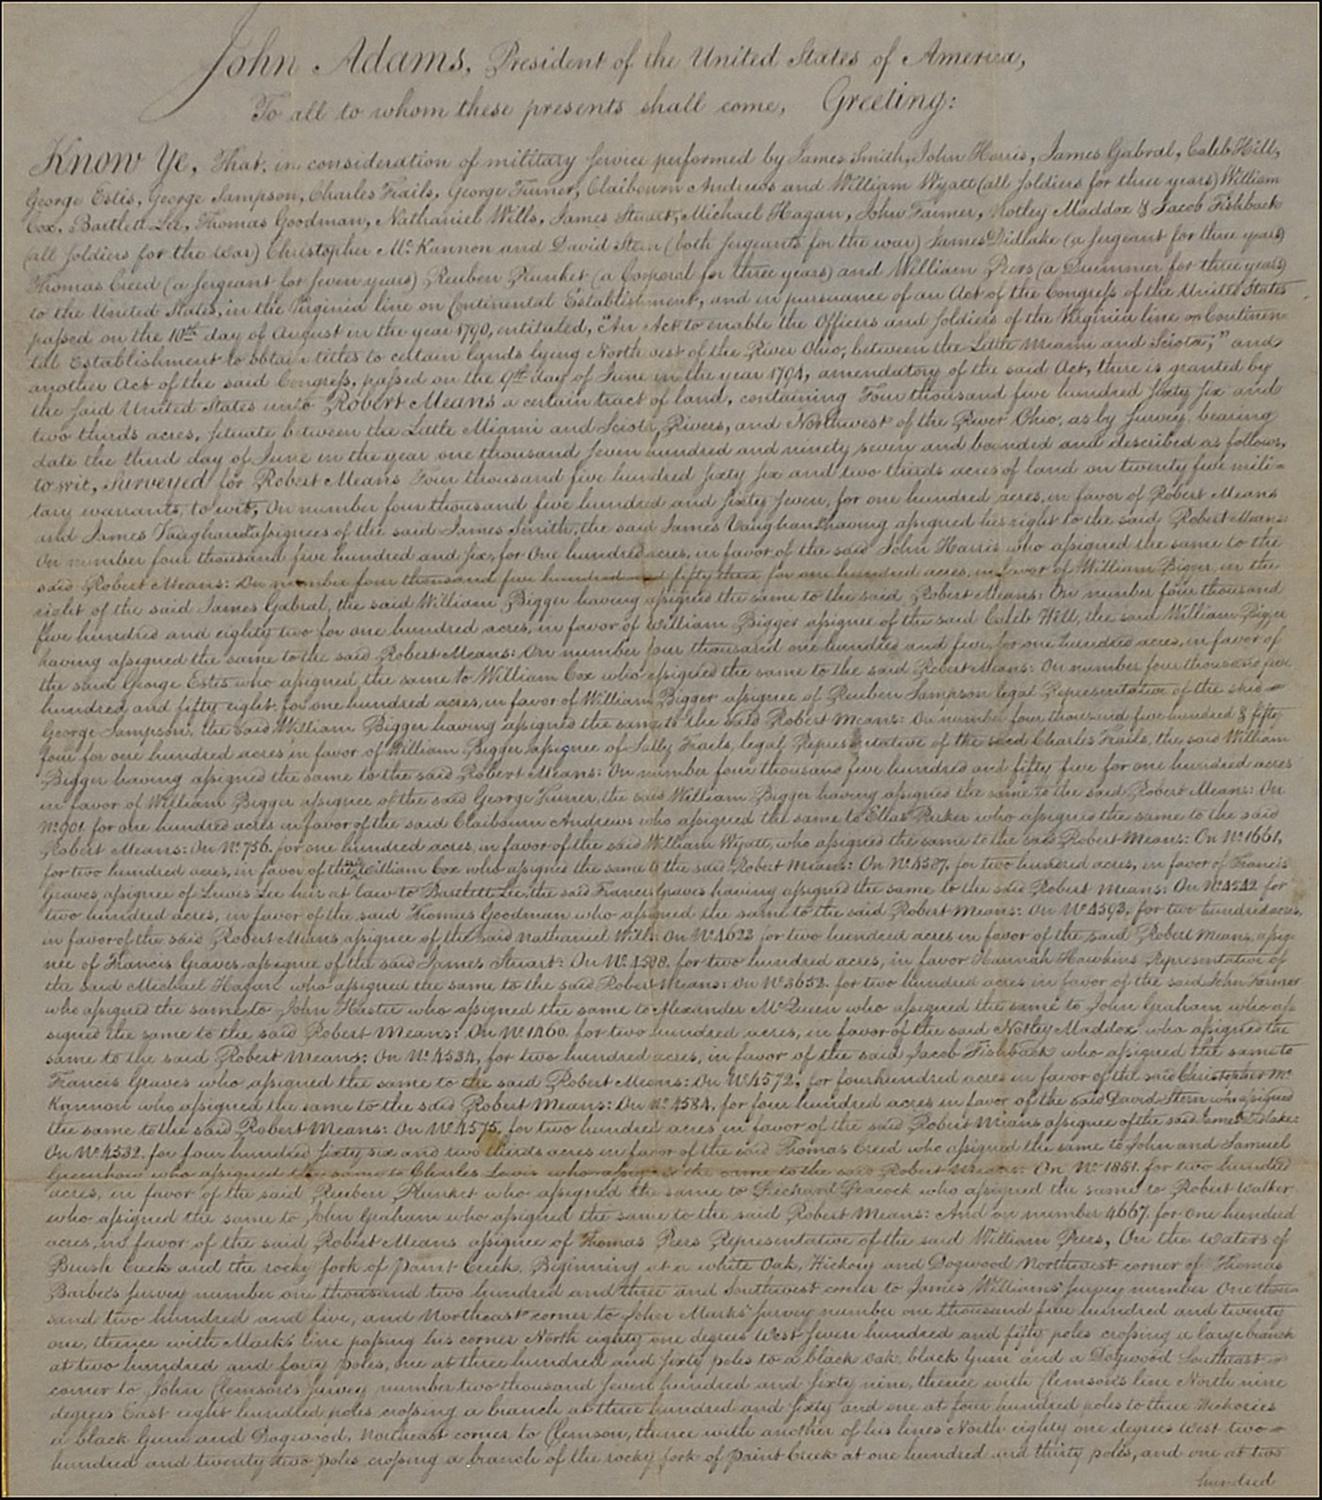 John Adams, President of the United States of America,
To all to whom these presents shall come, Greeting:
Know Ye, That, in consideration of military service performed by James Smith, John Harris, James Gabral, Caleb Hill,
George Estis, George Sampson, Charles Frails, George Turner, Claibourn Andrews and William Wyatt (all soldiers for three years) William
Cox, Bartlett Lee, Thomas Goodman, Nathaniel Wills, James Stuart, Michael Hagan, John Farmer, Notley Maddox & Jacob Fishback
(all soldiers for the war) Christopher Mc Kannon and David Stern (both sergeants for the war) James Didlake (a sergeant for three years)
Thomas Creed (a sergeant for seven years) Reuben Plunket (a Corporal for three years) and William Peers (a Drummer for three years)
to the United States, in the Virginia line on Continental Establishment, and in pursuance of an Act of the Congress of the United States
passed on the 10th day of August in the year 1790, entituled, "An Act to enable the Officers and soldiers of the Virginia line on Continen-
tal Establishment to obtain titles to certain lands lying Northwest of the River Ohio, between the Little Miami and Sciota;" and
another Act of the said Congress, passed on the 9th day of June in the year 1794, amendatory of the said Act, there is granted by
the said United States unto Robert Means a certain tract of land, containing Four thousand five hundred sixty six and
two thirds acres, situate between the Little Miami and Sciota Rivers, and Northwest of the River Ohio, as by survey, bearing
date the third day of June in the year one thousand seven hundred and ninety seven and bounded and described as follows,
to wit, Surveyed for Robert Means Four thousand five hundred sixty six and two thirds acres of land on twenty five mili=
tary warrants, to wit, On number four thousand five hundred and sixty seven, for one hundred acres, in favor of Robert Means
and James Vaughan assignees of the said James Smith, the said James Vaughan having assigned his right to the said Robert Means:
On number four thousand five hundred and six, for One hundred acres, in favor of the said John Harris who assigned the same to the
said Robert Means: On number four thousand five hundred and fifty three for one hundred acres, in favor of William Bigger, in the
right of the said James Gabral, the said William Bigger having assigned the same to the said Robert Means: On number four thousand
five hundred and eighty two for one hundred acres, in favor of William Bigger assignee of the said Caleb Hill, the said William Bigger
having assigned the same to the said Robert Means: On number four thousand one hundred and five, for one hundred acres, in favor of
the said George Estis who assigned the same to William Cox who assigned the same to the said Robert Means: On number four thousand five
hundred and fifty eight, for one hundred acres, in favor of William Bigger assignee of Reuben Sampson legal Representative of the said
George Sampson, the said William Bigger having assigned the same to the said Robert Means: On number four thousand five hundred & fifty
four for one hundred acres in favor of William Bigger, assignee of Sally Frails, legal Representative of the said Charles Frails, the said William
Bigger having assigned the same to the said Robert Means: On number four thousand five hundred and fifty five for one hundred acres
in favor of William Bigger assignee of the said George Turner, the said William Bigger having assigned the same to the said Robert Means: On
No. 901. for one hundred acres in favor of the said Claibourn Andrews who assigned the same to Elias Parker who assigned the same to the said
Robert Means: On No. 756. for one hundred acres, in favor of the said William Wyatt, who assigned the same to the said Robert Means: On No. 1661,
for two hundred acres, in favor of the said William Cox who assigned the same to the said Robert Means: On No. 4587. for two hundred acres, in favor of Francis
Graves assignee of Lewis Lee heir at law to Bartlett Lee, the said Francis Graves having assigned the same to the said Robert Means: On No. 4542 for
two hundred acres, in favor of the said Thomas Goodman who assigned the same to the said Robert Means: On No. 4593. for two hundred acres,
in favor of the said Robert Means assignee of the said Nathaniel Wills: On No. 4623 for two hundred acres in favor of the said Robert Means, assig-
nee of Francis Graves assignee of the said James Stuart: On No. 4588. for two hundred acres, in favor Hannah Hawkins Representative of
the said Michael Hagan who assigned the same to the said Robert Means: On No. 3652. for two hundred acres in favor of the said John Farmer
who assigned the same to John Hastie who assigned the same to Alexander Mc Queen who assigned the same to John Graham who as-
signed the same to the said Robert Means: On No. 1460. for two hundred acres, in favor of the said Notley Maddox who assigned the
same to the said Robert Means: On No. 4534, for two hundred acres, in favor of the said Jacob Fishback who assigned the same to
Francis Graves who assigned the same to the said Robert Means: On No. 4572. for four hundred acres in favor of the said Christopher Mc
Kannon who assigned the same to the said Robert Means: On No. 4584. for four hundred acres in favor of the said David Stern who assigned
the same to the said Robert Means: On No. 4575, for two hundred acres in favor of the said Robert Means assignee of the said James Didlake:
On No. 4532. for four hundred sixty six and two thirds acres in favor of the said Thomas Creed who assigned the same to John and Samuel
Greenhow who assigned the same to Charles Lewis who assigned the same to the said Robert Means: On No. 1851. for two hundred
acres, in favor of the said Reuben Plunket who assigned the same to Richard Peacock who assigned the same to Robert Walker
who assigned the same to John Graham who assigned the same to the said Robert Means: And on number 4667. for One hundred
acres, in favor of the said Robert Means assignee of Thomas Peers Representative of the said William Peers, On the waters of
Brush Creek and the rocky fork of Paint Creek, Beginning at a white Oak, Hickory and Dogwood Northwest corner of Thomas
Barber's survey number one thousand two hundred and three and Southwest corner to James Williams' survey number One thou-
sand two hundred and five, and Northeast corner to John Marks' survey number one thousand five hundred and twenty
one, thence with Mark's line passing his corner North eighty one degrees West seven hundred and fifty poles crossing a large branch
at two hundred and forty poles, one at three hundred and sixty poles to a black oak, black Gum and a Dogwood Southeast
corner to John Clemson's survey number two thousand seven hundred and sixty nine, thence with Clemson's line North nine
degrees East eight hundred poles crossing a branch at three hundred and sixty and one at four hundred poles to three Hickories
a black Gum and Dogwood, Northeast corner to Clemson, thence with another of his lines North eighty one degrees West two
hundred and twenty two poles crossing a branch of the rocky fork of Paint Creek at one hundred and thirty poles, and one at two
hundred